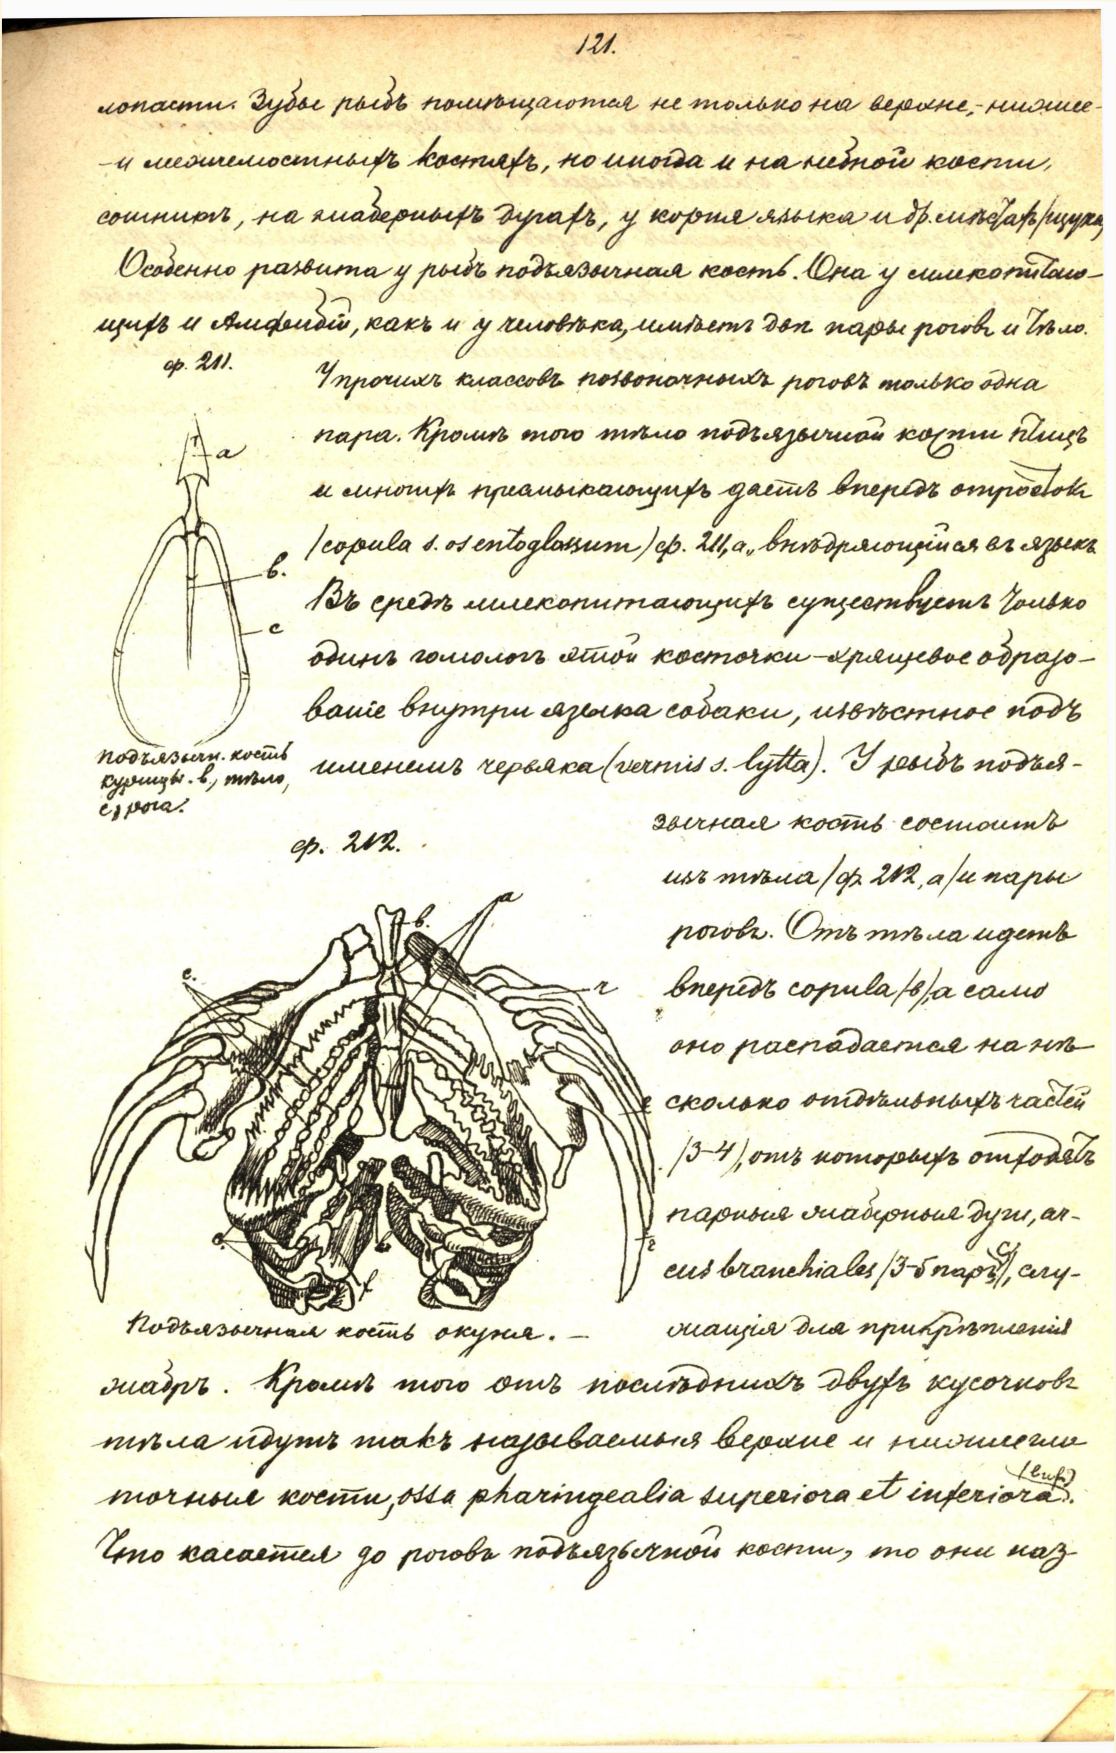 121.
лопасти. Зубы рыбъ помѣщаются не только на верхне,- нижне-
-и межчелюстныхъ костяхъ, но иногда и на небной кости,
сошникѣ, на жаберныхъ дугахъ, у корня языка и др. мѣстахъ /щука/
Особенно развита у рыбъ подъязычная кость. Она у млекопитаю-
щихъ и Амфибiй, какъ и у человѣка, имѣетъ двѣ пары роговъ и тѣло.
ф. 211.
У прочихъ классовъ позвоночныхъ роговъ только одна
пара. Кромѣ того тѣло подъязычной кости птицъ
и многихъ пресмыкающихъ даетъ впередъ отростокъ
/copula s. os entoglossum/ ф. 211, а,, внѣдряющiйся въ языкъ
Въ средѣ млекопитающихъ существуетъ только
одинъ гомологъ этой косточки–хрящевое образо-
ванiе внутри языка собаки, извѣстное подъ
именемъ червяка (vermis s. lytta). У рыбъ подъя-
а
в.
с
подъязычн. кость
курицы. в, тѣло,
с, рога.
зычная кость состоитъ
изъ тѣла /ф. 212, а/ и пары
роговъ. Отъ тѣла идетъ
впередъ copula /в/, а само
оно распадается на нѣ-
сколько отдѣльныхъ частей
/3-4/, отъ которыхъ отходятъ
парныя жаберныя дуги, ar-
cus branchiales /3-5 паръ с/, слу-
жащiя для прикрѣпленiя
ф. 212.
а
в.
с.
г
е
г
е.
f
Подъязычная кость окуня. –
жабръ. Кромѣ того отъ послѣднихъ двухъ кусочковъ
тѣла идутъ такъ называемыя верхнiе и нижнiе гло
точныя кости, ossa pharingealia superiora et inferiora /е и f/.
Что касается до роговъ подъязычной кости, то они наз-